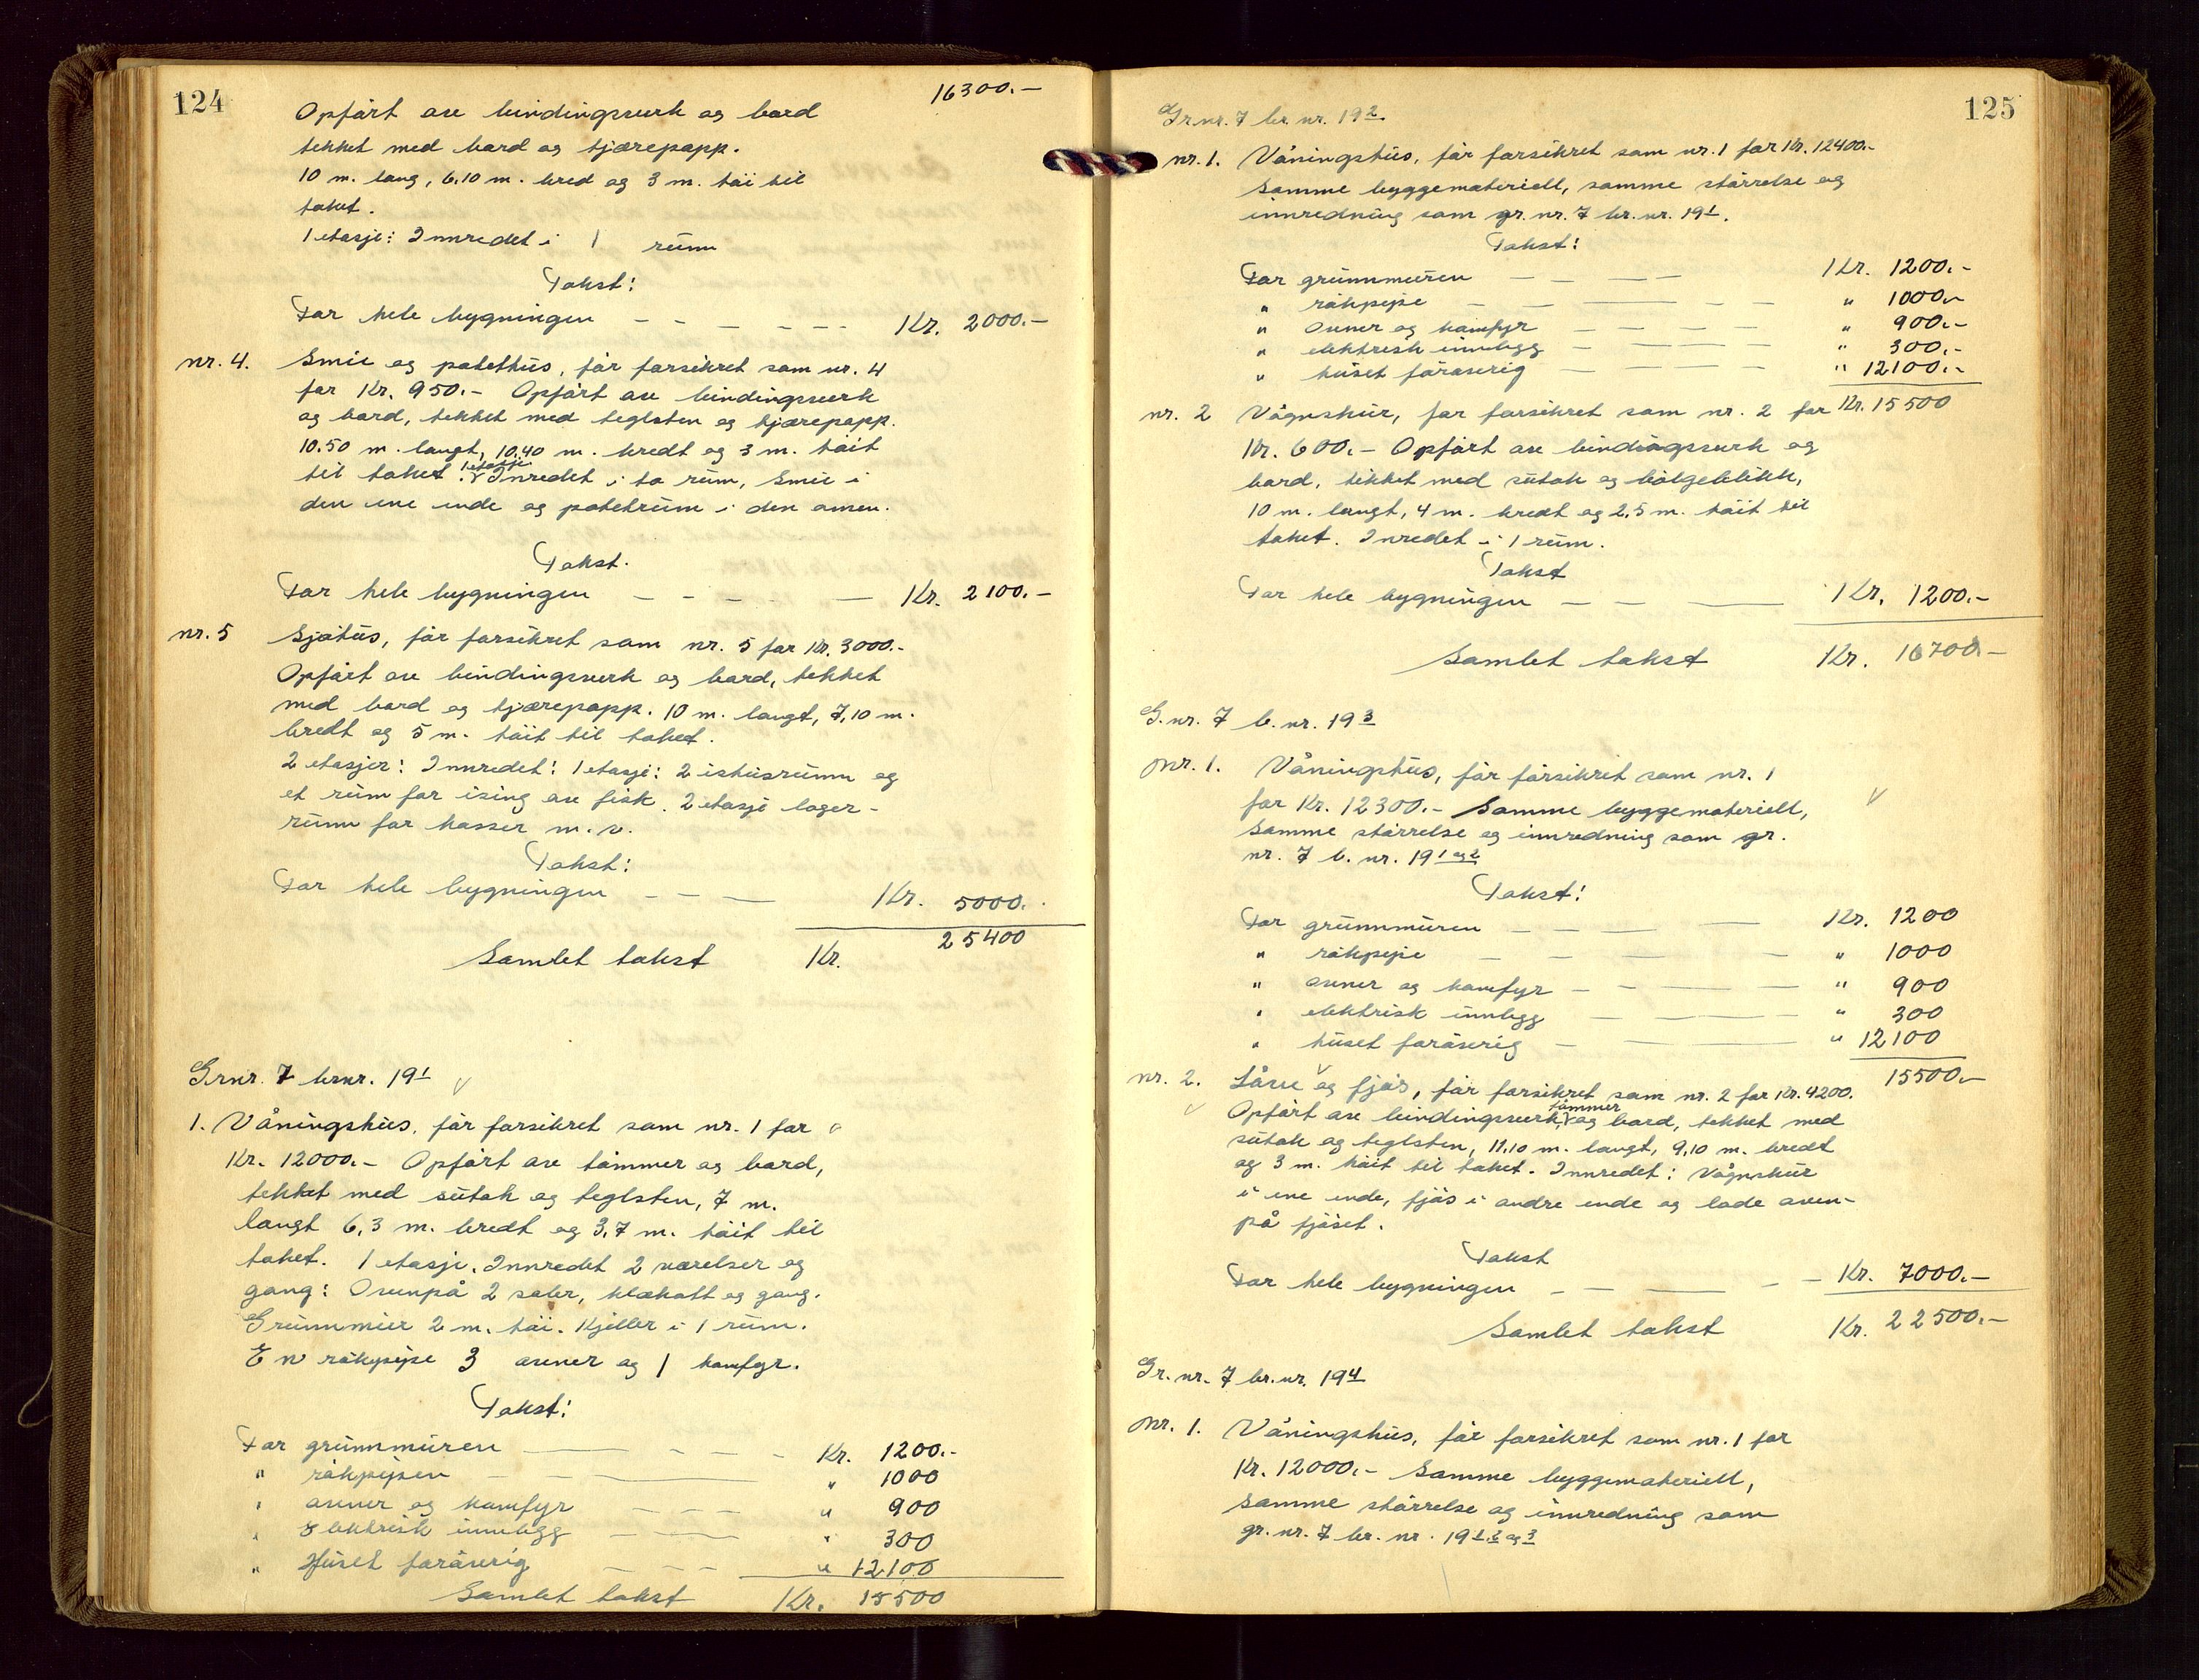 124
16300.-
Opført av bindingsverk og bord
tekket med bord og tjærepapp.
10 m. lang, 6,10 m. bred og 3 m. høi til
taket.
1 etasje: Innredet i 1 rum
Takst:
For hele bygningen - - - - - - Kr. 2000.-
nr. 4. Smie og potethus, før forsikret som nr. 4
for Kr. 950.- Opført av bindingsverk
og bord, tekket med teglsten og tjærepapp.
10.50 m. langt, 10,40 m. bredt og 3 m. høit
til taket. 1 etasje Inredet i to rum, Smie i
den ene ende og potetrum i den annen.
Takst.
For hele bygningen - - - - - Kr. 2100.-
nr. 5 Sjøhus, før forsikret som nr. 5 for Kr. 3000.-
Opført av bindingsverk og bord, tekket
med bord og tjærepapp. 10 m. langt, 7,10 m.
bredt og 5 m. høit til taket.
2 etasjer: Innredet: 1 etasje: 2 ishusrumm og
et rum for ising av fisk. 2 etasje lager-
rumm for kasser m. v.
Takst:
For hele bygningen - - - Kr. 5000.
Samlet takst Kr. 25400
Grnr. 7 brnr. 19 1
1. Våningshus, før forsikret som nr. 1 for
Kr. 12000.- Opført av tømmer og bord,
tekket med sutak og teglsten, 7 m.
langt 6,3 m. bredt og 3,7 m. høit til
taket. 1 etasje. Innredet 2 værelser og
gang: Ovenpå 2 saler, klækott og gang.
Grunnmur 2 m. høi. Kjeller i 1 rum.
En røkpipe 3 ovner og 1 komfyr.
Takst:
For grunnmuren - - - - Kr. 1200.-
" røkpipen - - - " 1000
" ovner og komfyr - - - " 900
" Elektrisk innlegg - - " 300
" Huset forøverig - - - " 12100
Samlet takst Kr. 15500
125
Gr.nr. 7 br. nr. 19 2
nr. 1. Våningshus, før forsikret som nr. 1 for Kr. 12400.-
Samme byggemateriell, samme størrelse og
innredning som gr. nr. 7 br. nr. 19 1.
Takst:
For grunnmuren - - - - Kr. 1200.-
" røkpipe - - - - - " 1000.-
" Ovner og komfyr - - - - " 900.-
" elektrisk innlegg - - - - " 300.-
" huset forøverig - - - - " 12100.-
Kr. 15500
nr. 2 Vågnskur, før forsikret som nr. 2 for
Kr. 600.- Opført av bindingsverk og
bord, tekket med sutak og bølgeblikk,
10 m. langt, 4 m. bredt og 2,5 m. høit til
taket. Inredet i 1 rum.
Takst
For hele bygningen - - - Kr. 1200.-
Samlet takst Kr. 16700.-
G. nr. 7 b. nr. 19 3
nr. 1. Våningshus, før forsikret som nr. 1
for Kr. 12300.- Samme byggemateriell,
Samme størrelse og innredning som gr.
nr. 7 b. nr. 19 1 og 2
Takst:
For grunnmuren - - - - Kr. 1200
" røkpipe - - - - " 1000
" ovner og komfyr - - - - " 900
" elektrisk innlegg - - - " 300
" huset forøverig - - - " 12100
15500.-
nr. 2. Løve og fjøs, før forsikret som nr. 2 for Kr. 4200.
Opført av bindingsverk, tømmer og bord, tekket med
sutak og teglsten, 11,10 m. langt, 9,10 m. bredt
og 3 m. høit til taket. Innredet: Vågnskur
i ene ende, fjøs i andre ende og lade oven-
på fjøset.
Takst
For hele bygningen - - - - - Kr. 7000.-
Samlet takst Kr. 22500.-
Gr. nr. 7 br. nr. 19 4
nr. 1. Våningshus, før forsikret som nr. 1 for
Kr. 12000.- Samme byggemateriell,
samme størrelse og innredning som
gr. nr. 7 br. nr. 19 1, 2 og 3